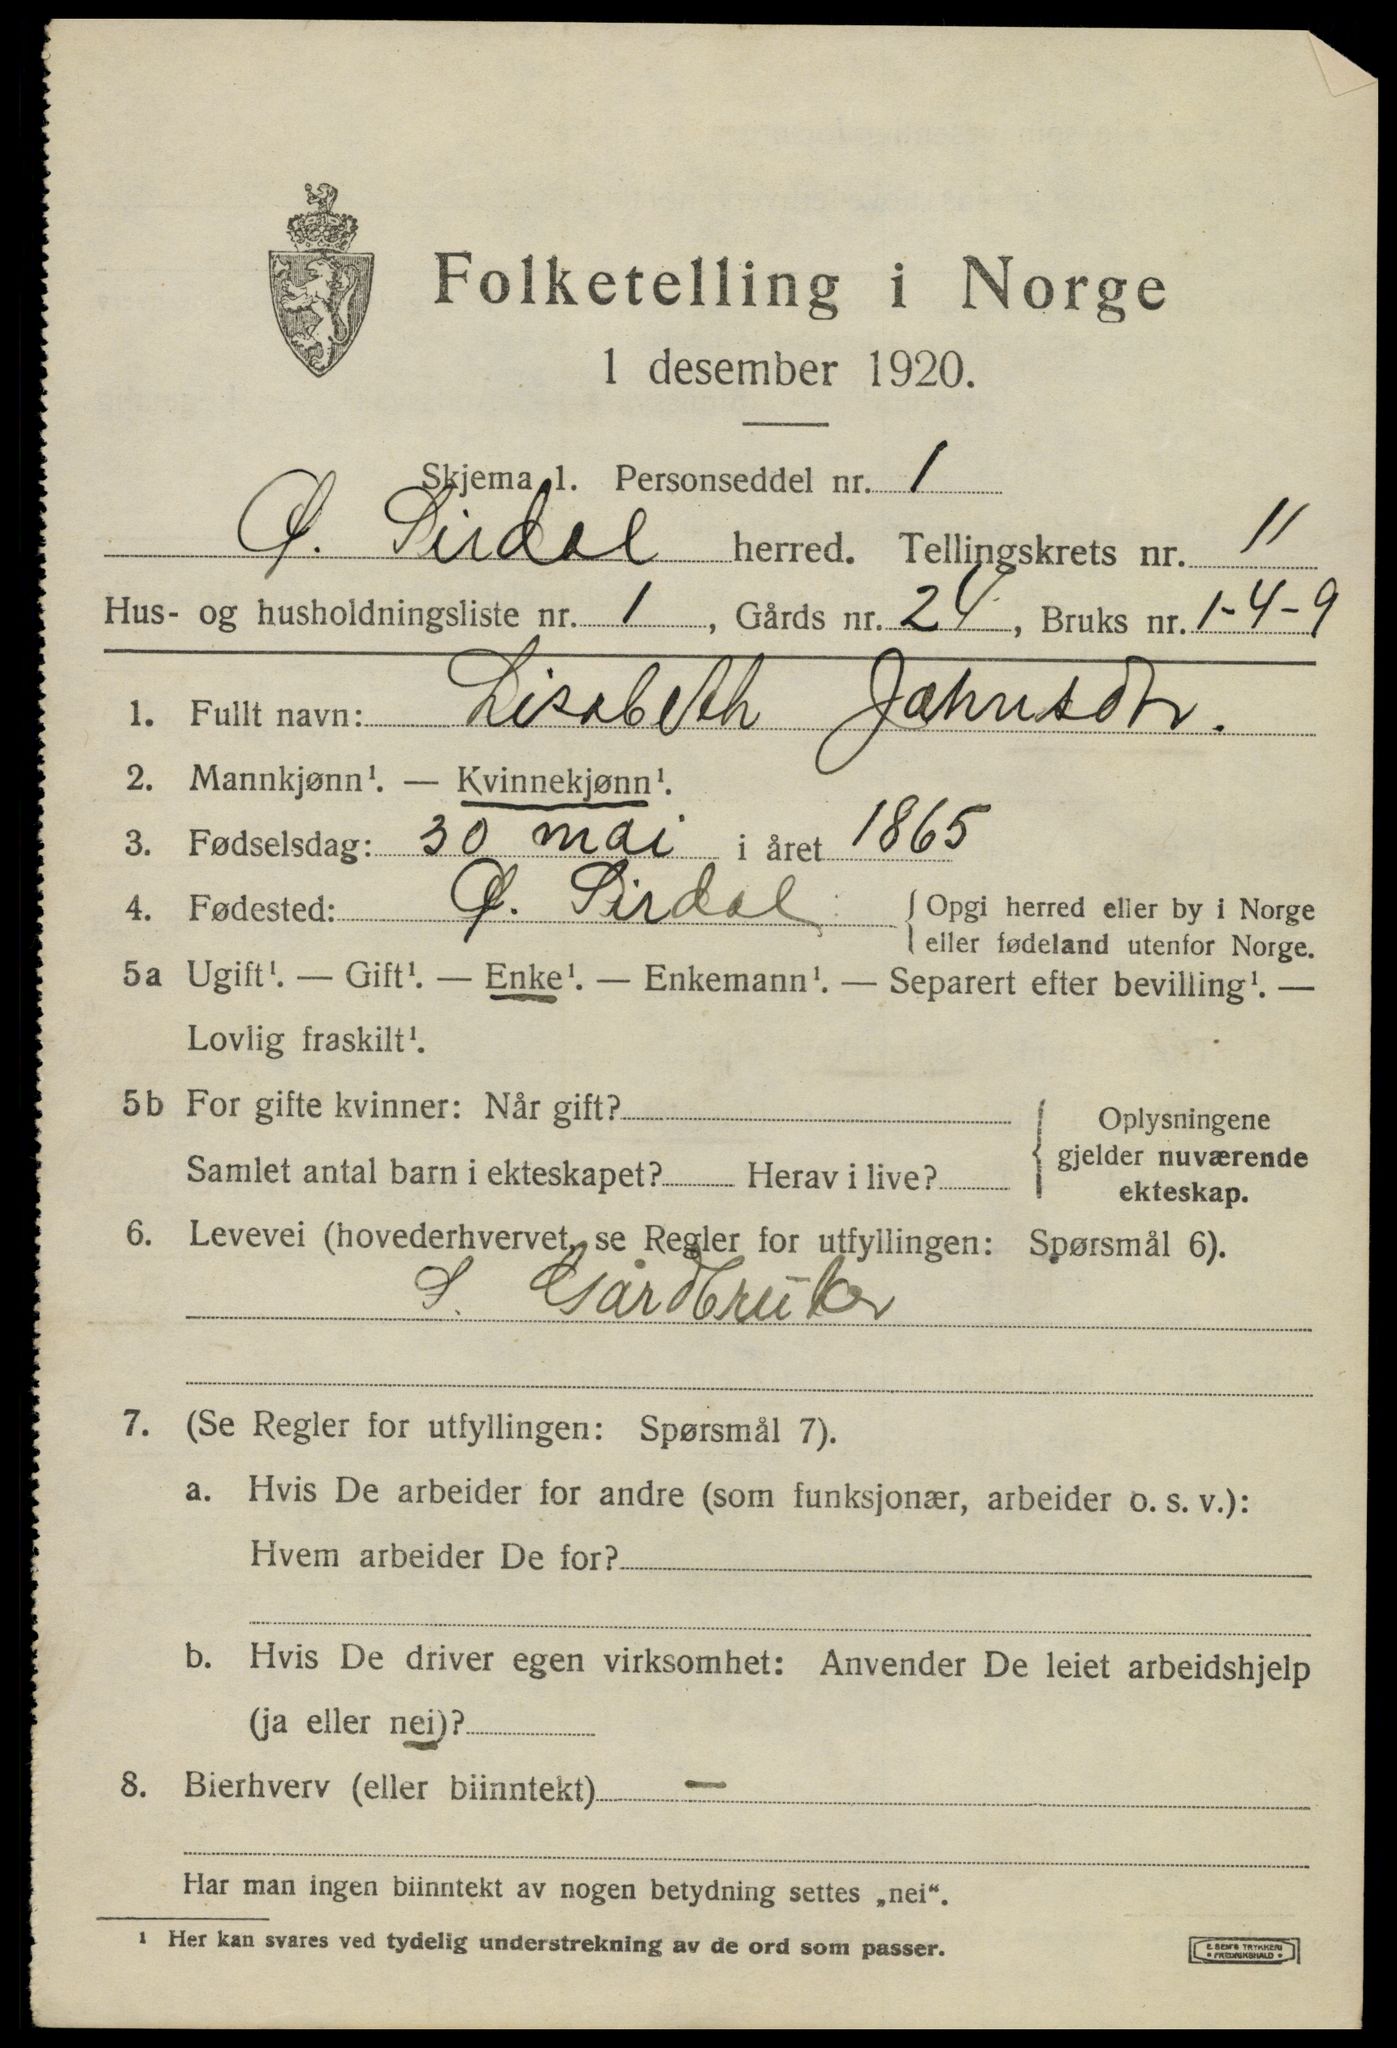 Folketelling i Norge
1 desember 1920.
Skjema 1. Personseddel nr. 1
Ø. Sirdal herred. Tellingskrets nr. 11
Hus- og husholdningsliste nr. 1, Gårds nr. 24, Bruks nr. 1-4-9
1. Fullt navn: Lisabeth Jahnsdtr.
2. Mannkjønn¹. — Kvinnekjønn¹.
3. Fødselsdag: 30 mai i året 1865
4. Fødested: Ø. Sirdal { Opgi herred eller by i Norge
eller fødeland utenfor Norge.
5a Ugift¹. — Gift¹. — Enke¹. — Enkemann¹. — Separert efter bevilling¹. —
Lovlig fraskilt¹.
5b For gifte kvinner: Når gift?
Samlet antal barn i ekteskapet? Herav i live?
{ Oplysningene
gjelder nuværende
ekteskap.
6. Levevei (hovederhvervet, se Regler for utfyllingen: Spørsmål 6).
S. Gårdbruker
7. (Se Regler for utfyllingen: Spørsmål 7).
a. Hvis De arbeider for andre (som funksjonær, arbeider o. s. v.):
Hvem arbeider De for?
b. Hvis De driver egen virksomhet: Anvender De leiet arbeidshjelp
(ja eller nei)?
8. Bierhverv (eller biinntekt) —
Har man ingen biinntekt av nogen betydning settes „nei“.
¹ Her kan svares ved tydelig understrekning av de ord som passer.
E. SEM'S TRYKKERI
• FREDRIKSHALD •